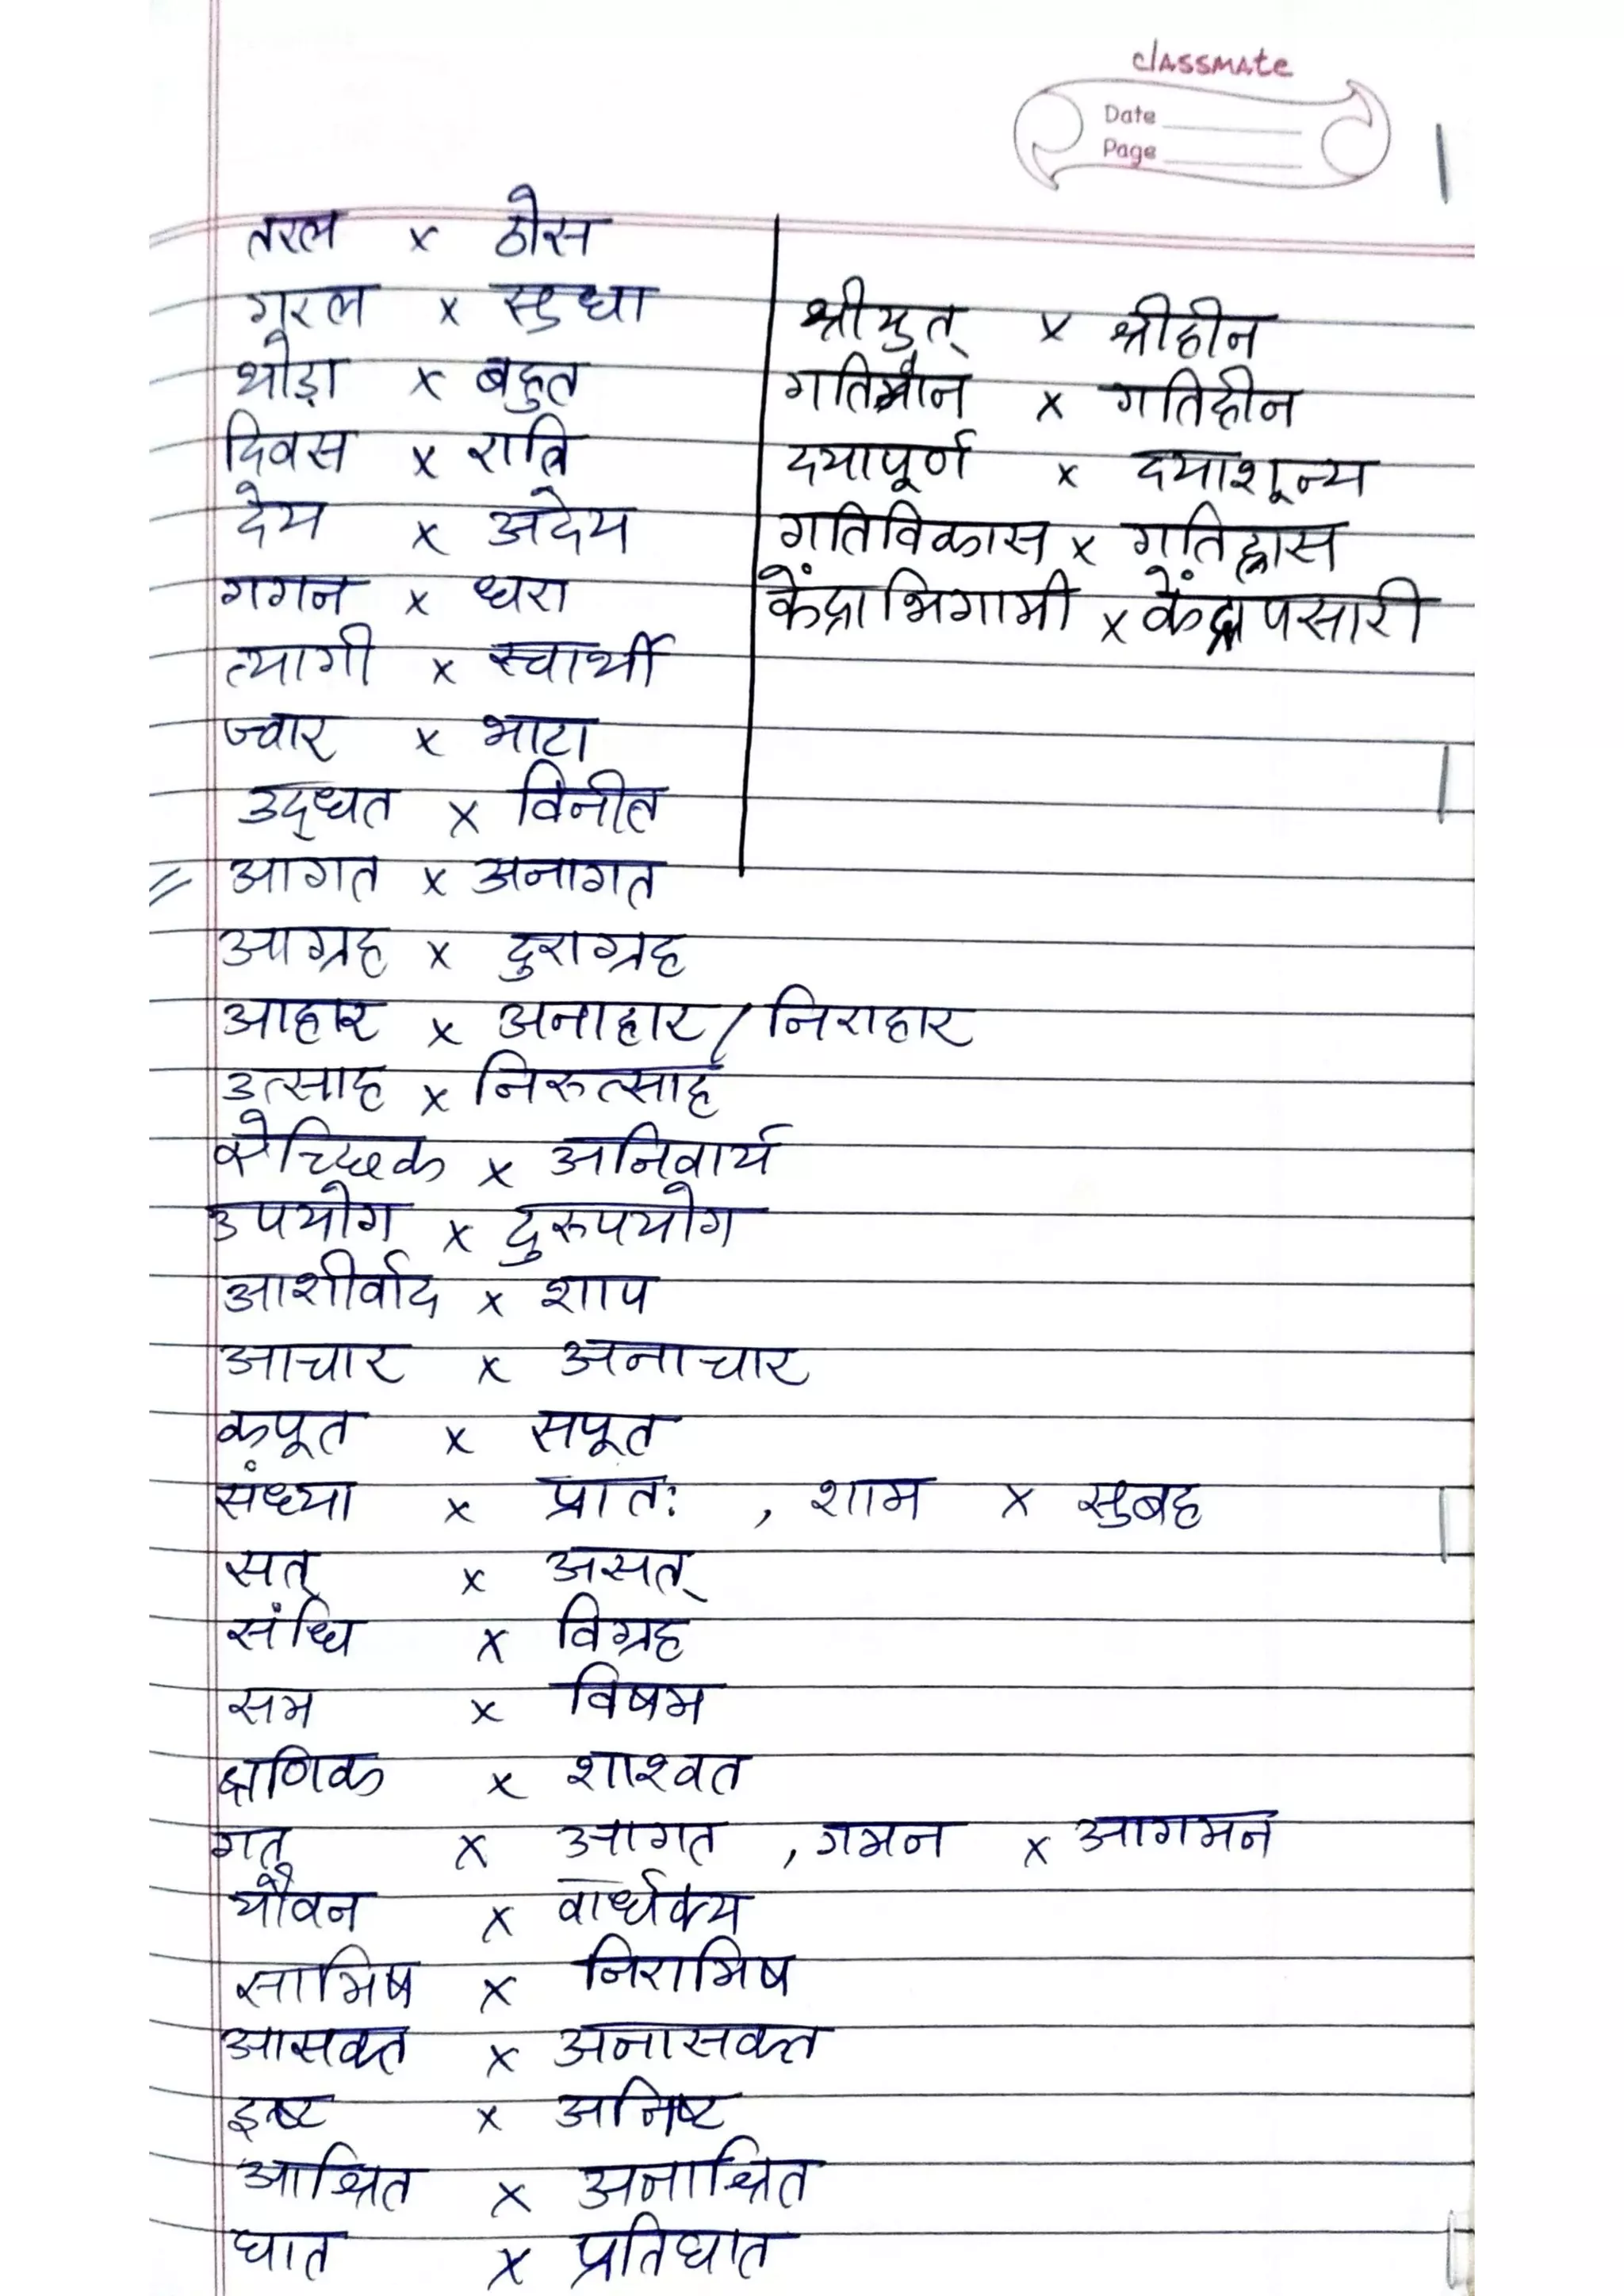 classmate
Date
Page
तरल x ठोस
गरल x सुधा
थोड़ा x बहुत
दिवस x रात्रि
देय x अदेय
गगन x धरा
त्यागी x स्वार्थी
ज्वार x भाटा
उद्धत x विनीत
आगत x अनागत
आग्रह x दुराग्रह
आहार x अनाहार / निराहार
उत्साह x निरुत्साह
x अनिवार्य
उपयोग x दुरुपयोग
आशीर्वाद x शाप
आचार x अनाचार
कपूत x सपूत
संध्या x प्रातः , शाम x सुबह
सत् x असत्
संधि x विग्रह
सम x विषम
क्षणिक x शाश्वत
गत x आगत , गमन x आगमन
यौवन x वार्धक्य
सामिष x निरामिष
आसक्त x अनासक्त
इष्ट x अनिष्ट
आश्रित x अनाश्रित
घात x प्रतिघात
श्रीयुत् x श्रीहीन
गतिमान x गतिहीन
दयापूर्ण x दयाशून्य
गतिविकास x गतिह्रास
केंद्राभिगामी x केंद्रापसारी